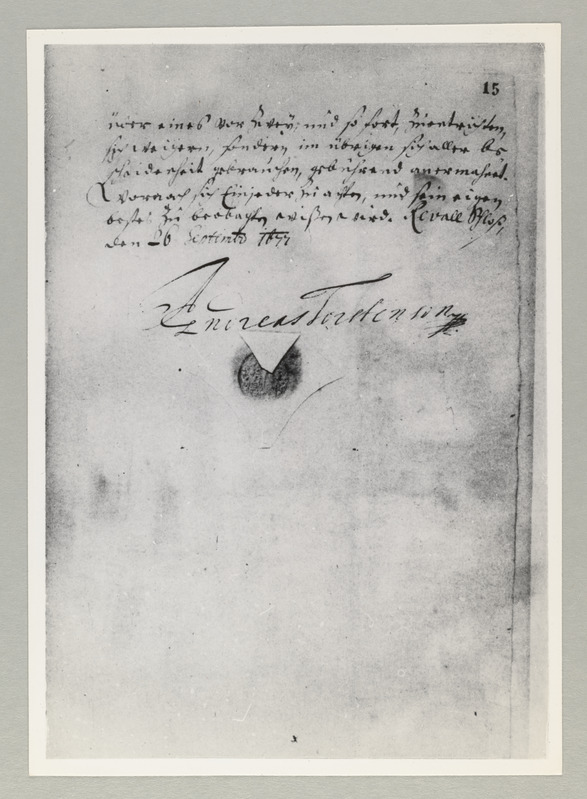 15
oder eines vor Zwey, und so fort, Zuentrichten,
sich weigern, sondern im übrigen sich aller be
scheidenheit gebrauchen, gebührend anermahnet.
Wornach sich Einjeder Zu achten, und sein eigen
bestes Zu beobachten wißen wird. Revall Schloß,
den 26 1677
Andreas Torstenson